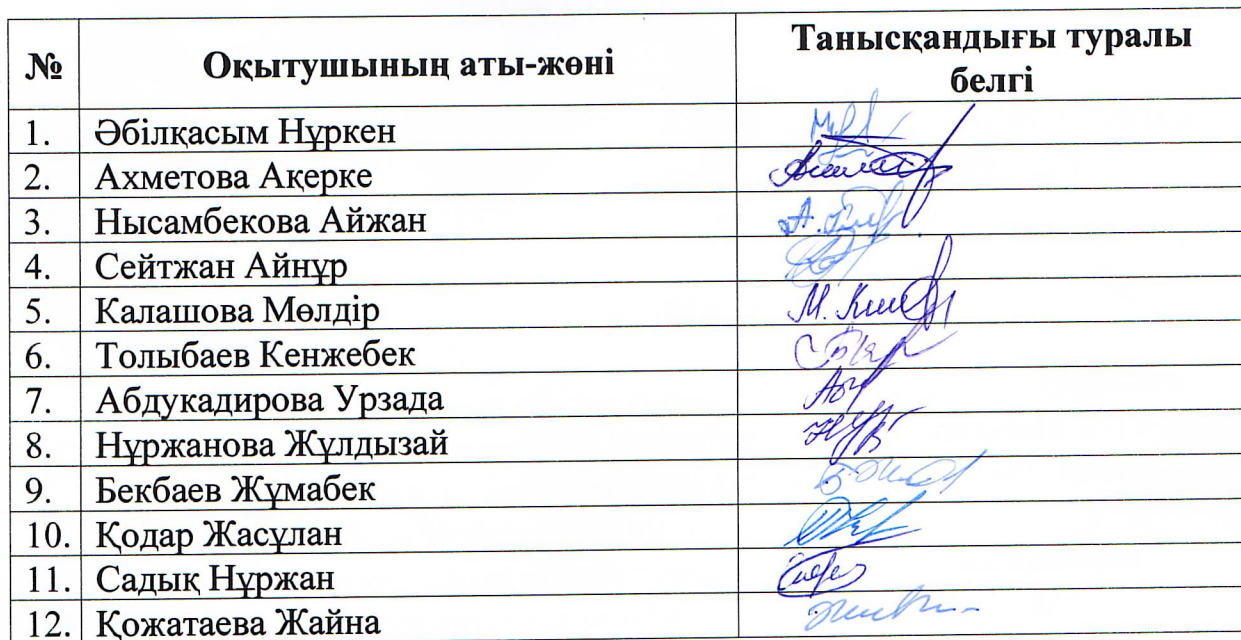 № Оқытушының аты-жөні Танысқандығы туралы
белгі
1. Әбілқасым Нұркен
2. Ахметова Ақерке
3. Нысамбекова Айжан
4. Сейтжан Айнұр
5. Калашова Мөлдір
6. Толыбаев Кенжебек
7. Абдукадирова Урзада
8. Нұржанова Жұлдызай
9. Бекбаев Жұмабек
10. Қодар Жасұлан
11. Садық Нұржан
12. Қожатаева Жайна